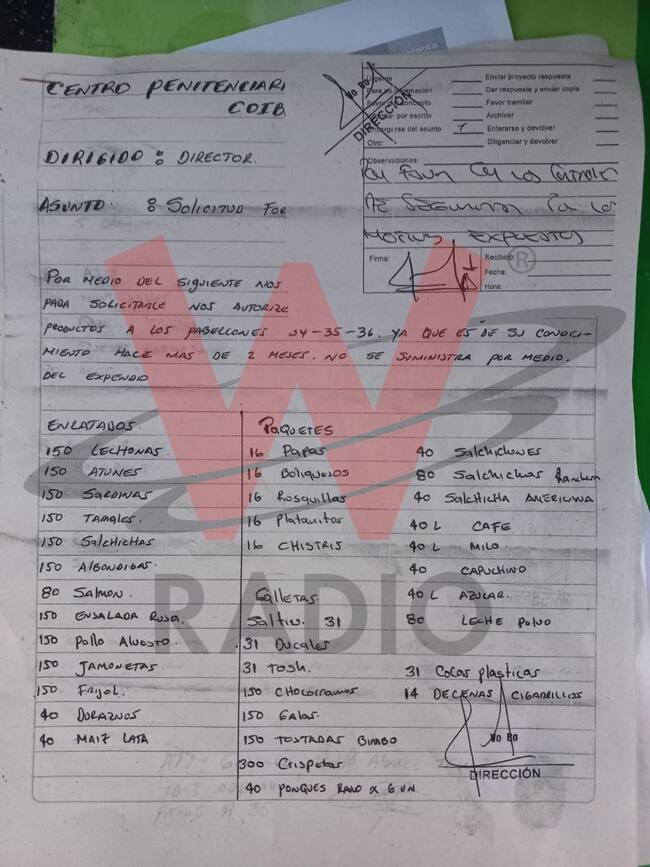 CENTRO PENITENCIARI
COIB
DIRIGIDO : DIRECTOR.
ASUNTO : Solicitud For
Vo Bo.
DIRECCIÓN
Urgente
Para su información
Favor dar concepto
por escrito
Encargarse del asunto
Otro:
Enviar proyecto respuesta
Dar respuesta y enviar copia
Favor tramitar
Archivar
Enterarse y devolver
Diligenciar y devolver
Observaciones:
Por favor
De Seguridad
Motivos Expuestos
Firma:
Recibido:
Fecha:
Hora:
POR MEDIO DEL SIGUIENTE NOS
PARA SOLICITARLE NOS AUTORIZE
PRODUCTOS A LOS PABELLONES 34-35-36. YA QUE ES DE SU CONOCI-
MIENTO HACE MAS DE 2 MESES. NO SE SUMINISTRA POR MEDIO.
DEL EXPENDIO
ENLATADOS.
150 LECHONAS
150 ATUNES
150 SARDINAS
150 TAMALES.
150 SALCHICHAS
150 ALBONDIGAS
80 SALMON.
150 ENSALADA RUSA.
150 POLLO
150 JAMONETAS
150 FRIJOL.
40 DURAZNOS
40 MAIZ LATA
PAQUETES
16 PAPAS
16 Boliquesos
16 Rosquillas
16 Platanitos
16 CHISTRIS
Galletas.
Saltin. 31
31 Ducales
31 Tosh.
150 Chocorramos
150 Galas.
150 TOSTADAS BIMBO
300 Crispetas
40 PONQUES RAMO X 6 UN
40 Salchichones
80 Salchichas Ranchera
40 SALCHICHA AMERICANA
40 L CAFE
40 L MILO.
40 CAPUCHINO
40 L AZUCAR.
80 LECHE POLVO
31 Cocas plasticas
14 DECENAS CIGARRILLOS
Vo Bo
DIRECCIÓN
W
®
RADIO